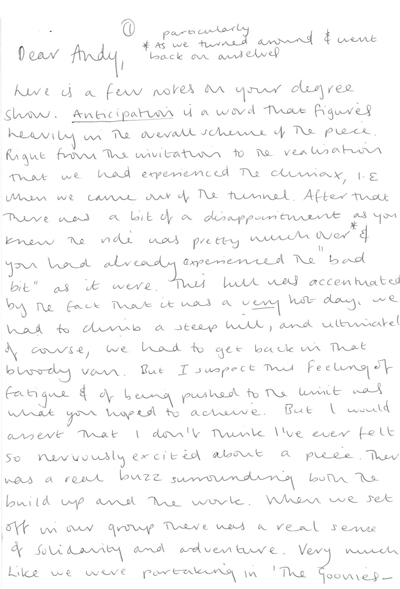 ①
particularly
* As we turned around & went
back on ourselves
Dear Andy,
here is a few notes on your degree
show. Anticipation is a word that figures
heavily in the overall scheme of the piece.
Right from the invitation to the realisation
that we had experienced the climax, I.E
when we came out of the tunnel. After that
there was a bit of a disappointment as you
knew the ride was pretty much over * &
you had already experienced the "bad
bit" as it were. This lull was accentuated
by the fact that it was a very hot day, we
had to climb a steep hill, and ultimatel
of course, we had to get back in that
bloody van. But I suspect this feeling of
fatigue & of being pushed to the limit was
what you hoped to achieve. But I would
assert that I don't think I've ever felt
so nervously excited about a piece. Ther
was a real buzz surrounding both the
build up and the work. When we set
off in our group there was a real sense
of solidarity and adventure. Very much
like we were partaking in 'The Goonies -